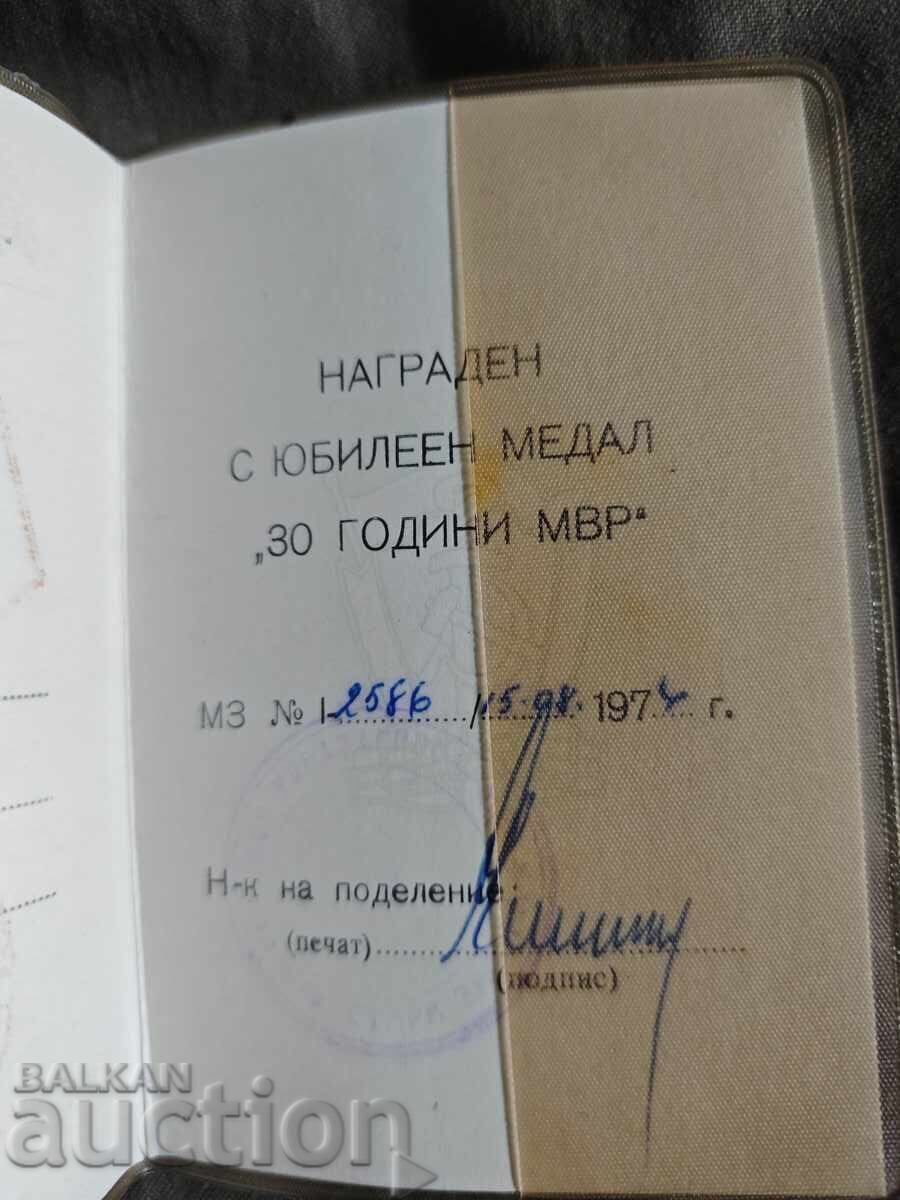 НАГРАДЕН
С ЮБИЛЕЕН МЕДАЛ
„30 ГОДИНИ МВР“
МЗ № I-2586/15.08.1974 г.
Н-к на поделение:
(печат)
(подпис)
BALKAN
auction